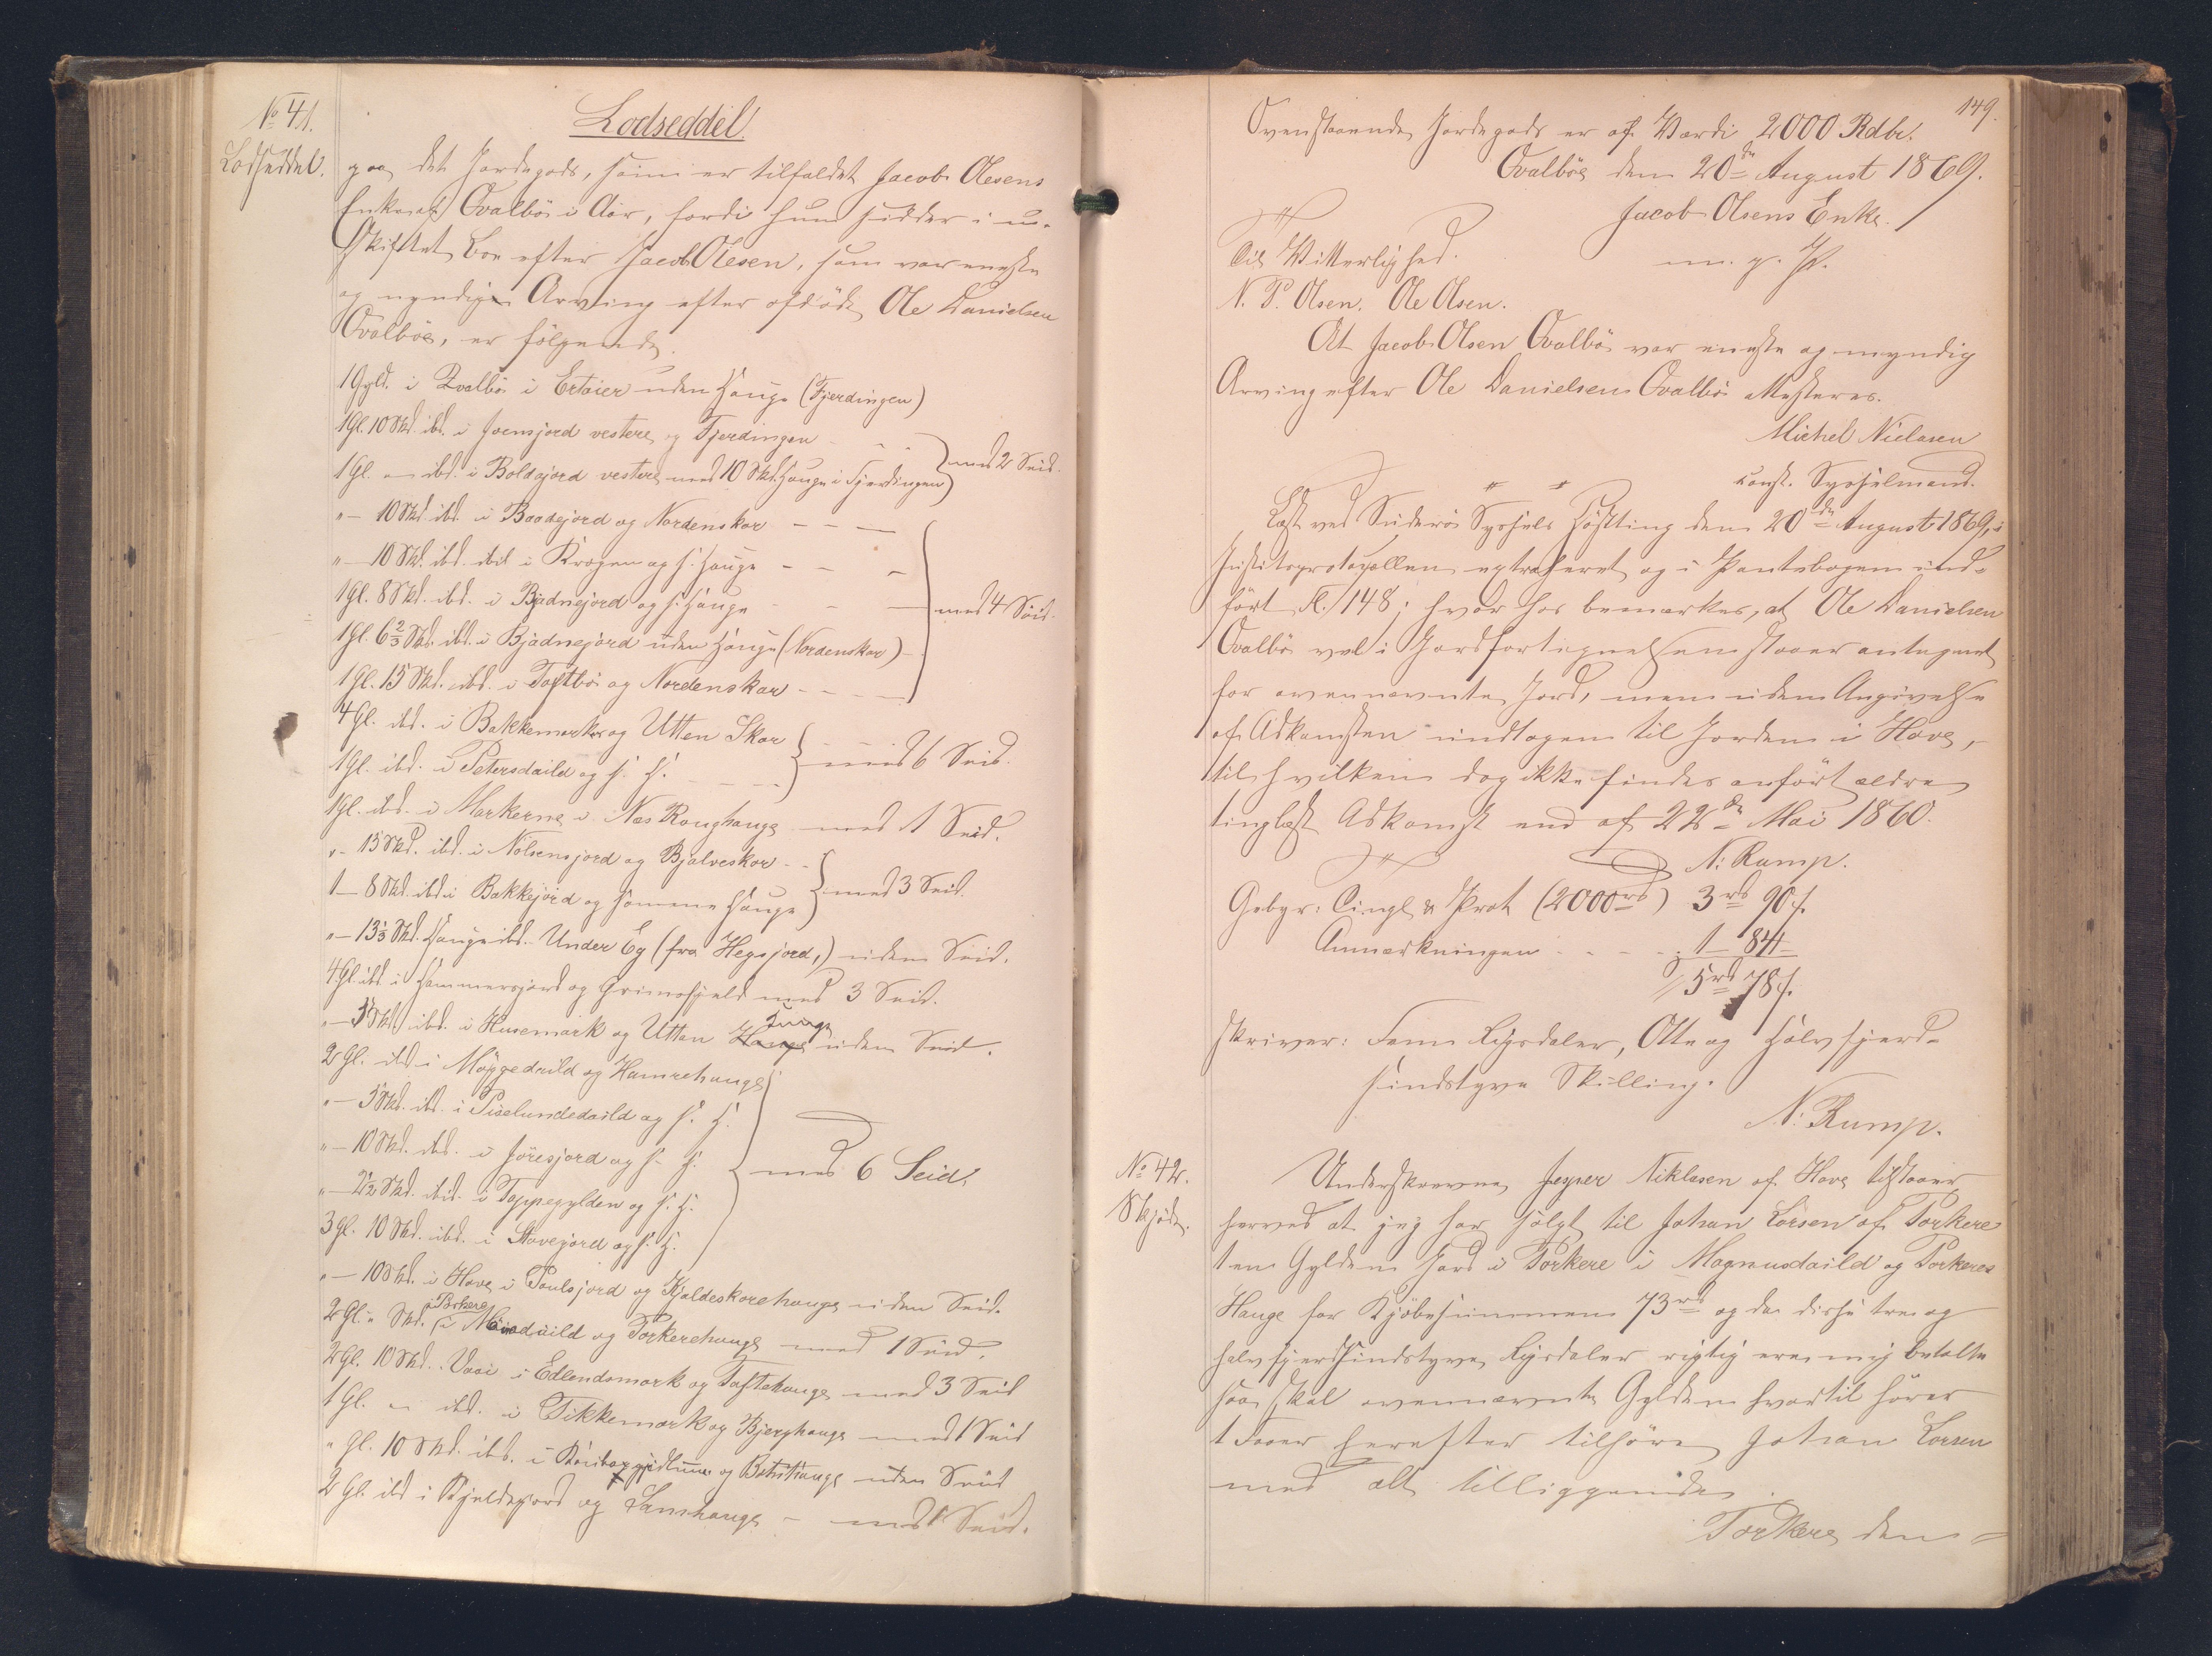 No 41.
Lodseddel.
Lodseddel
paa det Jordegods, som er tilfaldet Jacob Olesens
Enke af Qvalböe i Aar, fordi hun sidder i u-
skiftet Boe efter Jacob Olesen, som var eneste
og myndige Arving efter afdöde Ole Danielsen
Qvalböe, er fölgende.
1 Gyld. i Qvalbö i Ertaier uden Hauge (Fjerdingen)
1 Gl. 10 Skd. ibd. i Joensjord vestere og Fjerdingen - - -
1 Gl. - ibd. i Boldsjord vestere med 10 Skd. Hauge i Fjerdingen } med 2 Seid.
" - 10 Skd. ibd. i Baadejord og Nordenskor - - -
" - 10 Skd. ibd. i Krogen og s. Hauge - - -
1 Gl. 8 Skd. ibd. i Bjadnejord og s. Hauge - - } med 4 Seid.
1 Gl. 6 2/3 Skd. ibd. i Bjadnejord uden Hauge (Nordenskor) -
1 Gl. 15 Skd. ibd. i Toftbö og Nordenskor - - - -
4 Gl. ibd. i Bakkemarker og Utten Skor
1 Gl. ibd. i Petersdaild og s. H. - - - } med 6 Seid.
1 Gl. ibd. i Markerne i Næs Roughauge med 1 Seid.
" - 15 Skd. ibd. i Nolsensjord og Bjalveskor - -
1 - 8 Skd. ibd. i Bakkejord og samme Hauge } med 3 Seid.
" - 13 1/3 Skd. Hauge ibd. Under Eg (fra Hegsjord,) uden Seid.
4 Gl. ibd. i Hammersjord og Grimsfjeld med 3 Seid.
" - 5 Skd. ibd. i Husemark og Utten Hauge uden Seid.
2 Gl. ibd. i Möggedaild og Hamrehauge
" - 5 Skd. ibd. i Piselundedaild og s. H.
" - 10 Skd. ibd. i Jöresjord og s. H. } med 6 Seid.
" - 2 1/2 Skd. ibid. i Toppegylden og s. H.
3 Gl. 10 Skd. ibd. i Stovejord og s. H.
" - 10 Skd. i Hove i Poulsjord og Kjaldeskorehauge uden Seid.
2 Gl. " Skd. i Porkere i daild og Porkerehauge med 1 Seid.
2 Gl. 10 Skd. Vaai i Edlendsmark og Toftehauge med 3 Seid
1 Gl. - ibd. i Tikkemark og Bjerghauge med 1 Seid
" Gl. 10 Skd. ibd. i og uden Seid
2 Gl. ibd i Kjeldejord og Lamhauge - med 1 Seid.
149.
Ovenstaaende Jordegods er af Værdi 2000 Rdlr.
Qvalböe den 20de August 1869.
Jacob Olsens Enke.
m. p. P.
Til Vitterlighed.
N. P. Olsen. Ole Olsen.
At Jacob Olsen Qvalbö var eneste og myndig
Arving efter Ole Danielsen Qvalbö attesteres.
Michel Nielasen
const. Sysselmand.
Læst ved Suderö Syssels Höstting den 20de August 1869, i
Justitsprotocollen extraheret og i Pantebogen ind-
fört Fl. 148; hvor hos bemærkes, at Ole Danielsen
Qvalbö vel i Jordfortegnelsen staaer antegnet
for ovennævnte Jord, men uden Angivelse
af Adkomsten undtagen til Jorden i Hove,
til hvilken dog ikke findes anfört ældre
tinglæst Adkomst end af 22de Mai 1860.
N: Rump.
Gebyr: Tingl. & Prot (2000rd) 3rd 90s.
Anmærkningen - - - 1 - 84 -
5rd 78s.
skriver: Fem Rigsdaler, Otte og Halvfjerd-
sindstyve Skilling.
N: Rump.
No 42.
Skjöde.
Underskrevne Jesper Niklasen af Hove tilstaaer
herved at jeg har solgt til Johan Larsen af Porkere
1 en Gylden Jord i Porkere i Magnusdaild og Porkeres
Hauge for Kjöbesummen 73rd og da disse tre og
halvfjerdsindstyve Rigsdaler rigtig ere mig betalte
saa skal ovennævnte Gylden hvortil hörer
1 Faaer herefter tilhöre Johan Larsen
med alt tilliggende.
Porkere den =